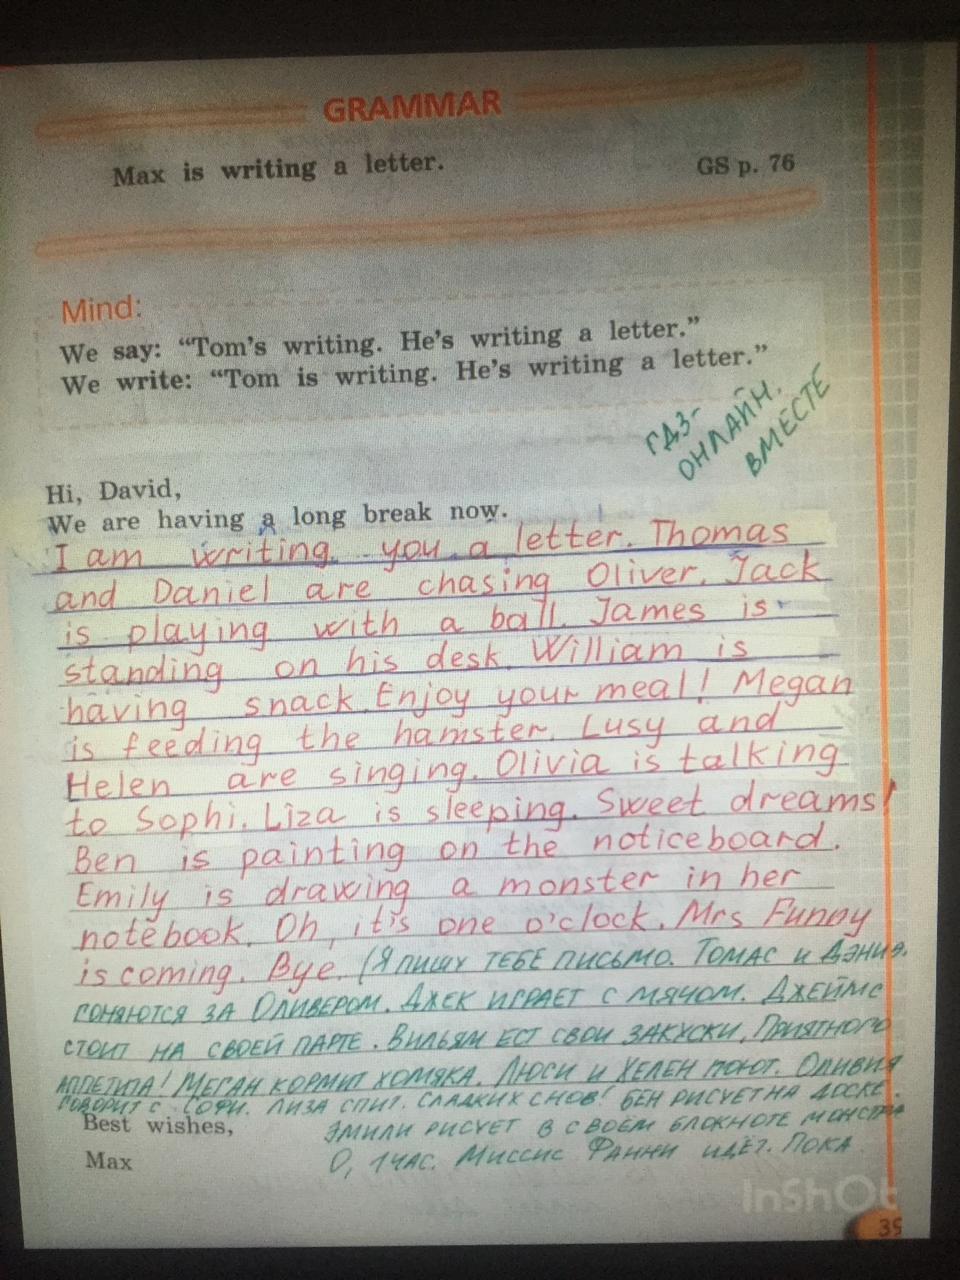 GRAMMAR
Max is writing a letter. GS p. 76
Mind:
We say: “Tom's writing. He's writing a letter.”
We write: “Tom is writing. He's writing a letter.”
ГДЗ-
ОНЛАЙН.
ВМЕСТЕ
Hi, David,
We are having a long break now.
I am writing you a letter. Thomas
and Daniel are chasing Oliver. Jack
is playing with a ball. James is
standing on his desk. William is
having snack. Enjoy your meal! Megan
is feeding the hamster. Lusy and
Helen are singing. Olivia is talking
to Sophi. Liza is sleeping. Sweet dreams!
Ben is painting on the noticeboard.
Emily is drawing a monster in her
notebook. Oh, it's one o'clock. Mrs Funny
is coming. Bye. (Я ПИШУ ТЕБЕ ПИСЬМО. ТОМАС И ДЭНИЭ.
ГОНЯЮТСЯ ЗА ОЛИВЕРОМ. ДЖЕК ИГРАЕТ С МЯЧОМ. ДЖЕЙМС
СТОИТ НА СВОЕЙ ПАРТЕ. ВИЛЬЯМ ЕСТ СВОИ ЗАКУСКИ, ПРИЯТНОГО
АППЕТИТА! МЕГАН КОРМИТ ХОМЯКА. ЛЮСИ И ХЕЛЕН ПОЮТ. ОЛИВИЯ
ГОВОРИТ С СОФИ. ЛИЗА СПИТ. СЛАДКИХ СНОВ! БЕН РИСУЕТ НА ДОСКЕ.
Best wishes, ЭМИЛИ РИСУЕТ В СВОЕМ БЛОКНОТЕ МОНСТРА
Max О, 1 ЧАС. МИССИС ФАННИ ИДЁТ. ПОКА
InShOt
39